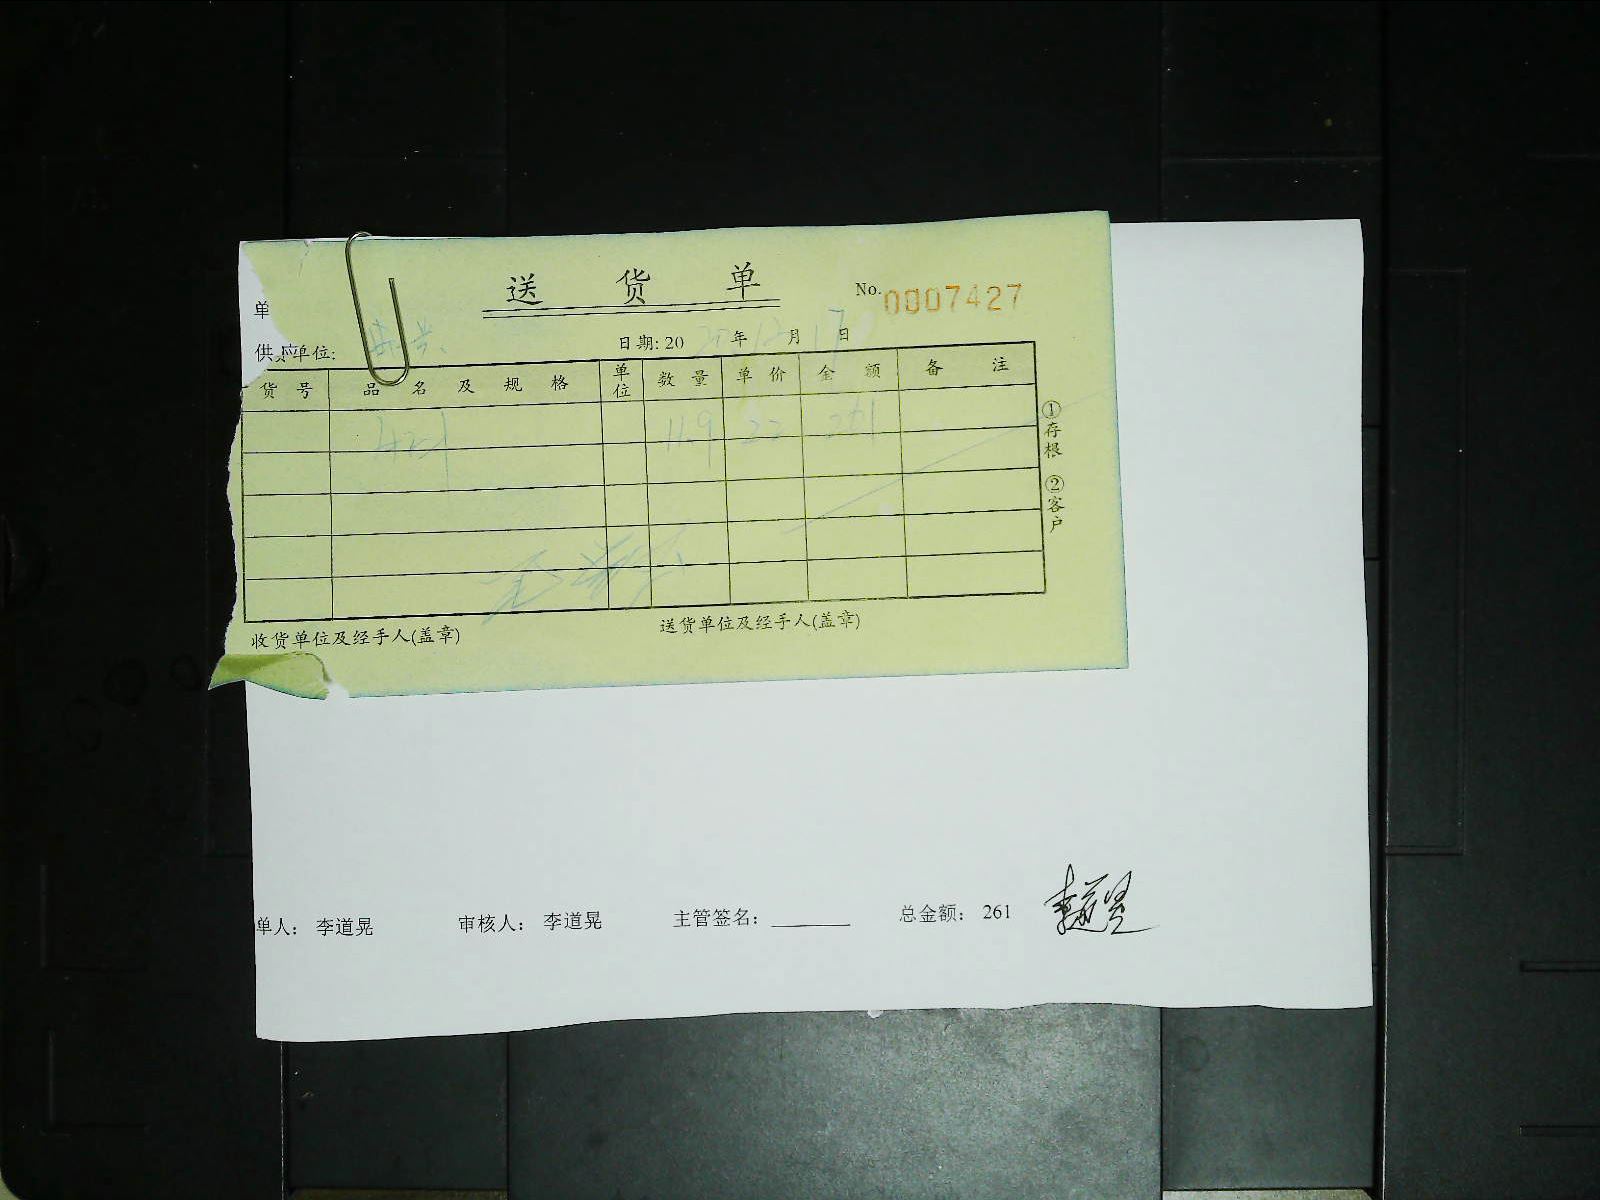 送货单 No. 0007427
单
供应单位: 日期: 20 20 年 12 月 17 日
货号 品名及规格 单位 数量 单价 金额 备注
11.9 22 261
①存根 ②客户
收货单位及经手人(盖章) 送货单位及经手人(盖章)
单人: 李道晃 审核人: 李道晃 主管签名: 总金额: 261